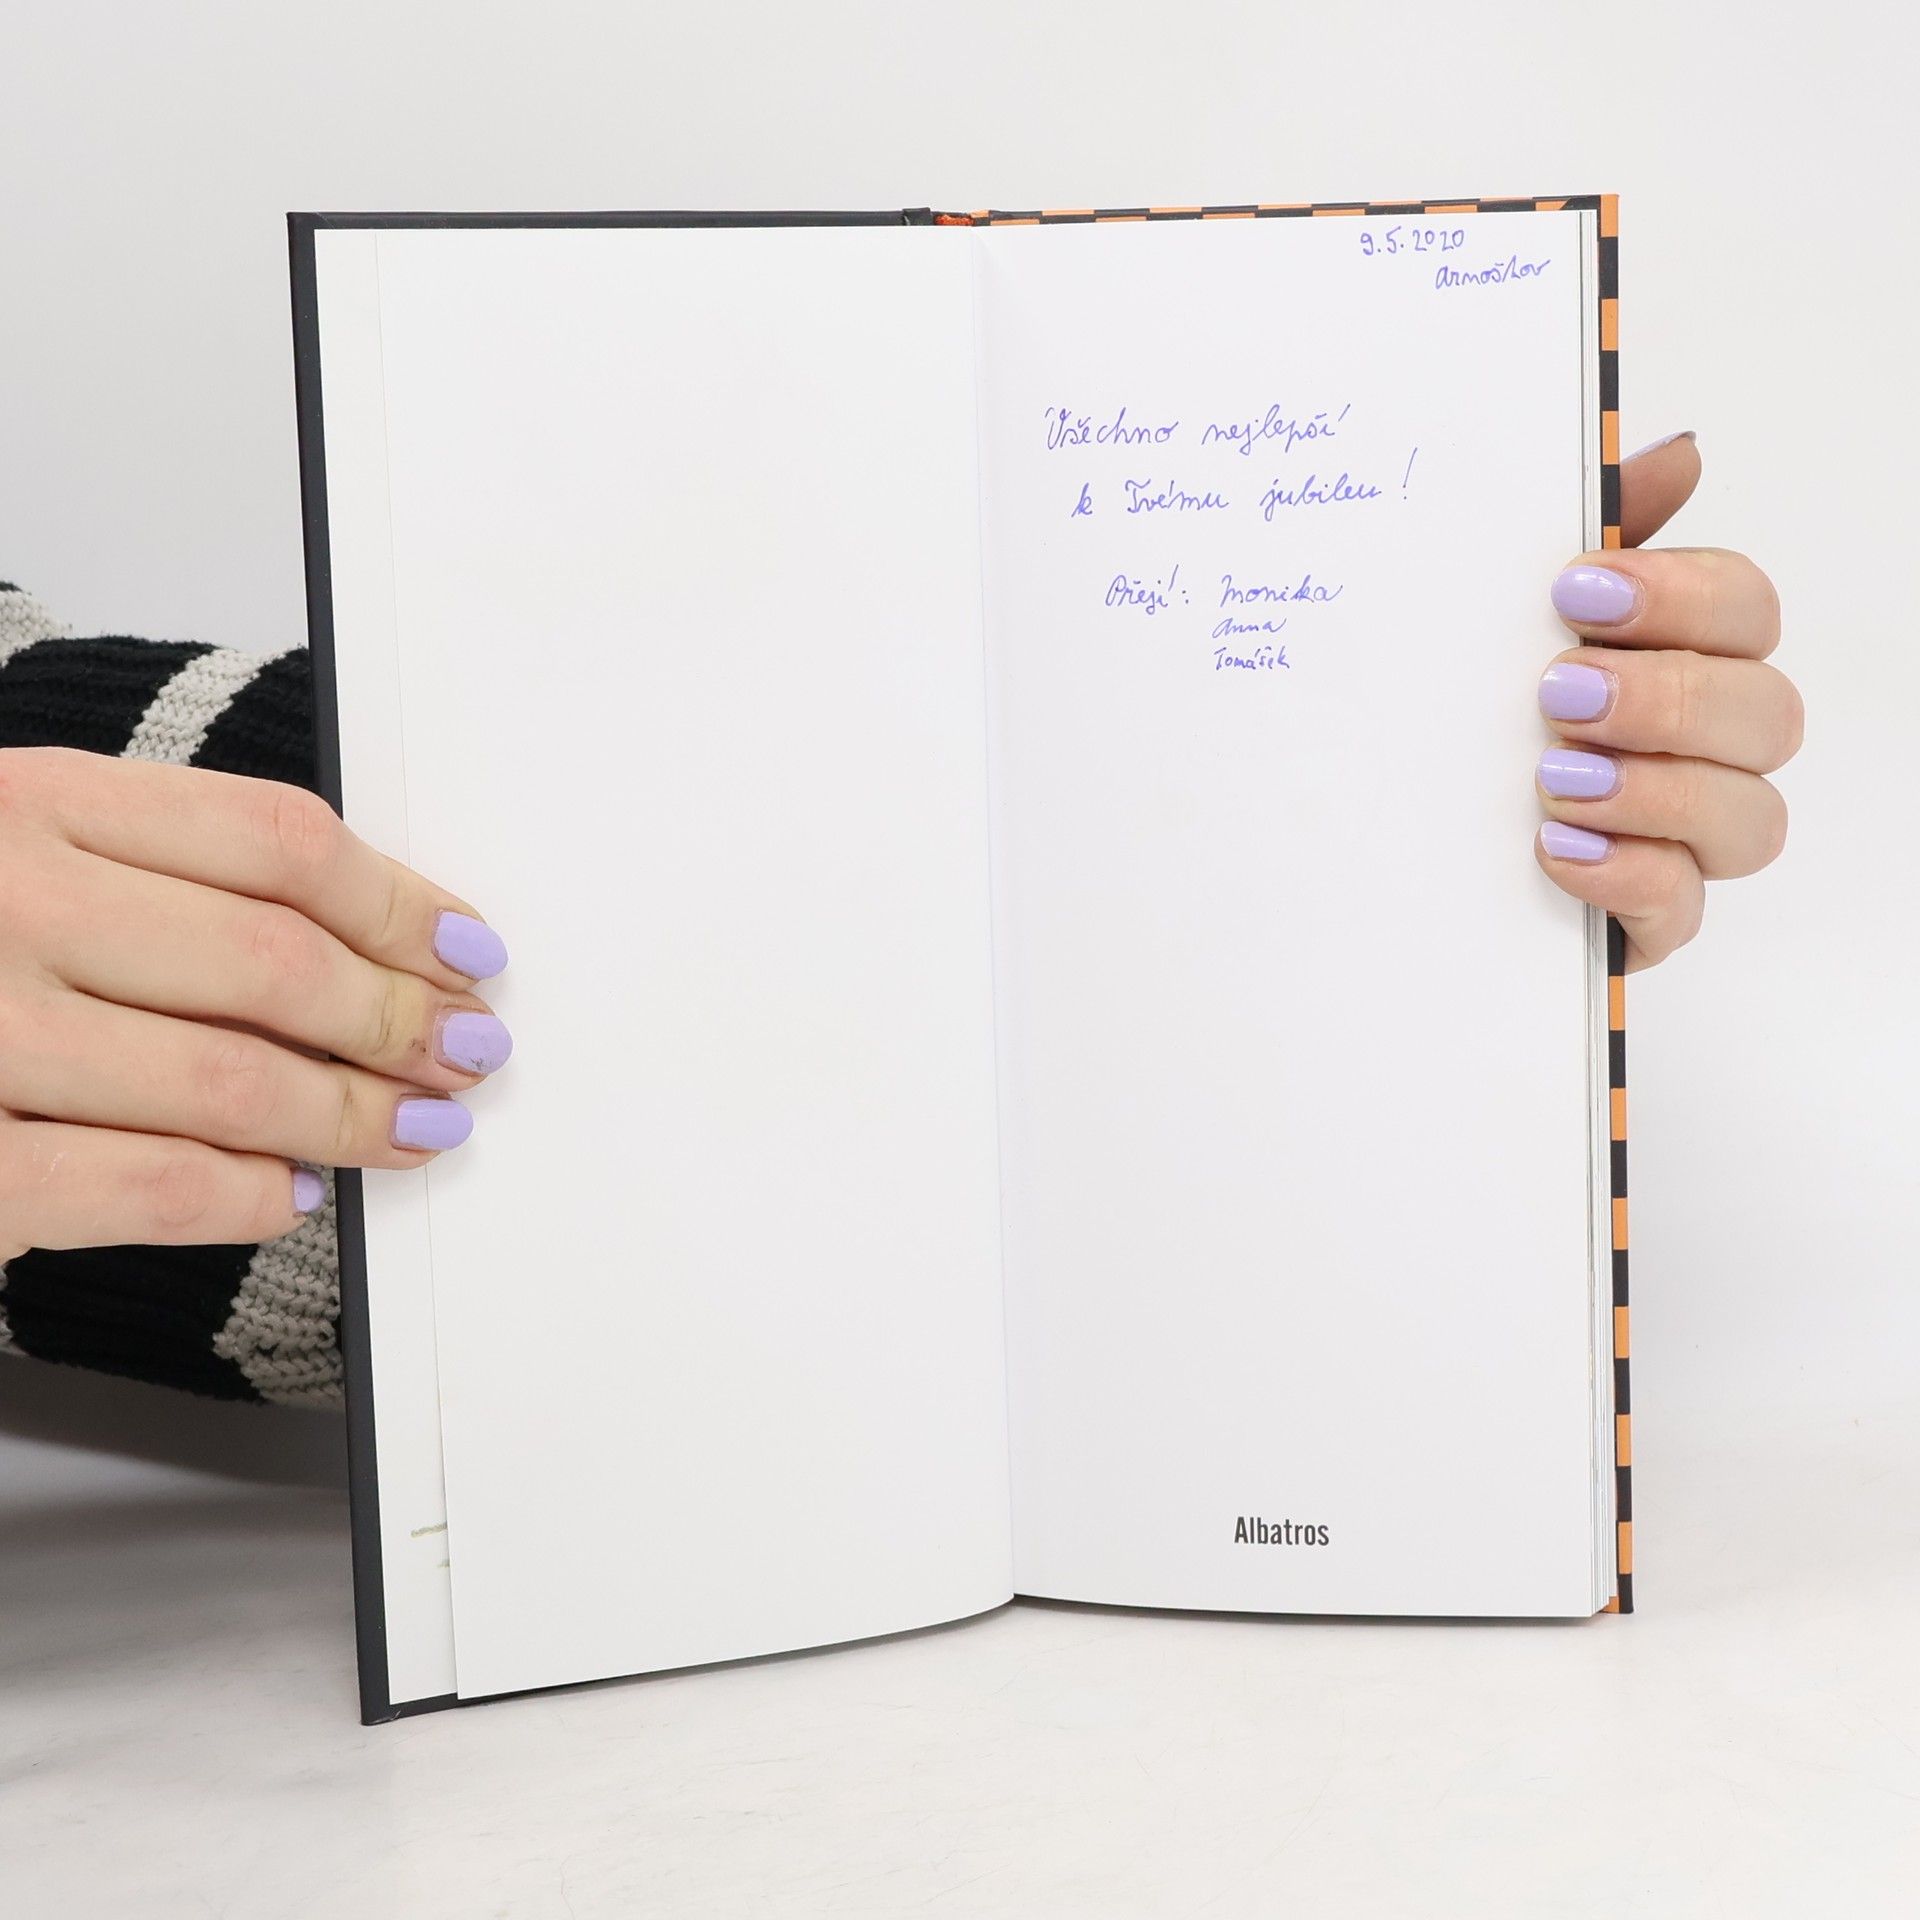 9.5.2020
Arnoškov
Všechno nejlepší
k Tvému jubileu!
Přejí: Monika
Anna
Tomášek
Albatros